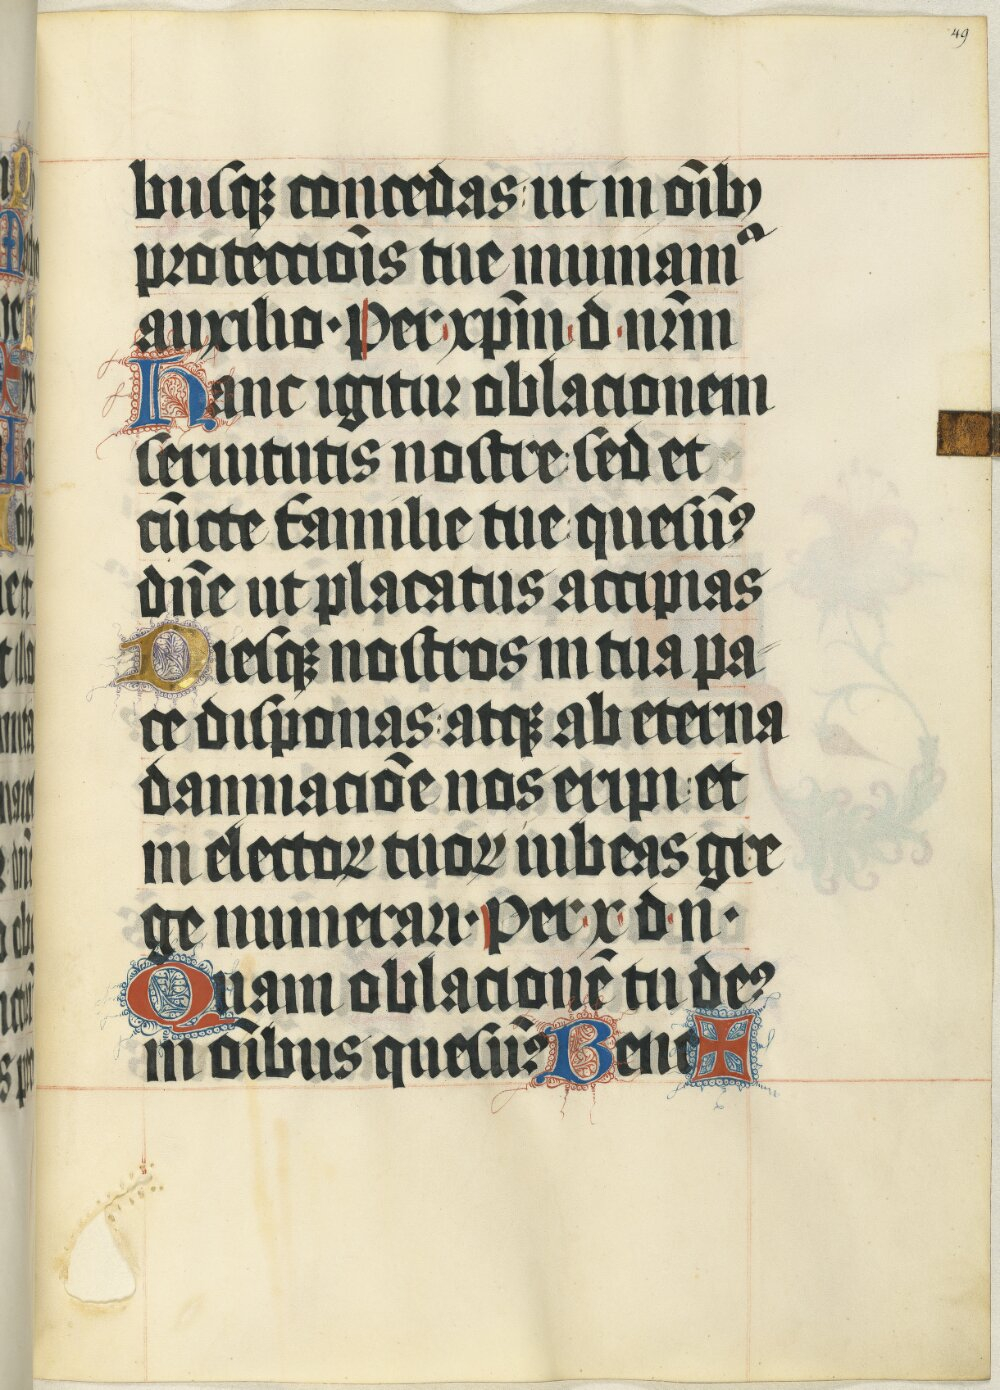 49
busqꝫ concedas: ut in oı̄bꝯ
proteccioı̄s tue muniamᷣ
auxilio· Per xp̄m d nr̄m
Hanc igitur oblacionem
seruitutis nostre: sed et
cūcte familie tue: quesūꝰ
dn̄e ut placatus accipias
Diesqꝫ nostros in tua pa-
ce disponas: atqꝫ ab eterna
damnacio̅e nos eripi: et
in electoꝝ tuoꝝ iubeas gre
ge numerari· Per x d n̄·
Quam oblacionē tu deꝰ
in oı̄bus quesūꝰ Bene ✠